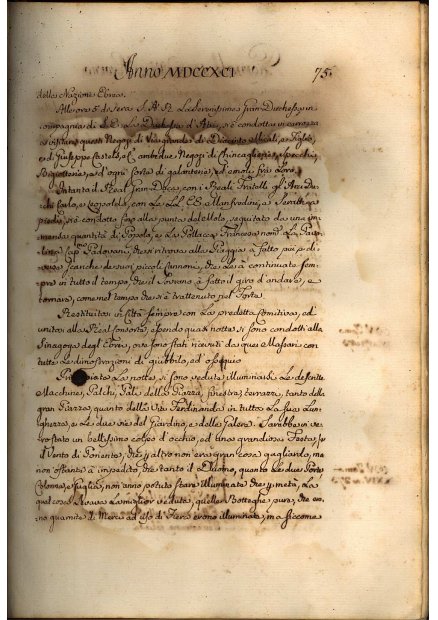 Anno MDCCXCI 75.
della Nazione Ebrea.
Alle ore 5 di sera S. A. R. La Serenissima Gran Duchessa in
compagnia di S. E. La Duchessa d' si è condotta in carrozza
a visitare questi Negozi di Via grande di Diacinto Micali, e Figlio,
e di Giuseppe Castelli, e C. ambedue Negozi di Chincaglierie, Specchi,
Bigiotterie, ed ogni sorta di galanterie, ed
Intanto il Real Gran Duca, con i Reali Fratelli gli Arcidu-
chi Carlo, e Leopoldo, con la LL. EE. Manfredini, e a
piedi, si è condotto fino alla punta del Molo, seguitato da una im-
mensa quantità di Popolo, e La Pollacca Francese La
Cap. Padovani, che si ritrova alla Piaggia à fatto più, e di-
verse scariche de suoi piccoli Cannoni, che le à continuate sem-
pre in tutto il tempo, che il Sovrano à fatto il giro d'andare, e
tornare, come nel tempo che si è trattenuto nel Forte.
Restituitosi in Città sempre con la predetta Comitiva, ed
unitosi alla Real Consorte, essendo quasi notte si sono condotti alla
Sinagoga degl' Ebrei, ove sono stati ricevuti da quei Massari con
tutte le dimostrazioni di giubbilo, ed ossequio.
La notte si sono vedute illuminarsi Le descritte
Macchine, Palchi, Pali della Piazza, finestre, terrazzi, tanto della
gran Piazza, quanto della Via Ferdinanda in tutta La sua Lun-
ghezza, e Le due vie del Giardino, e delle Galere. Sarebbevi ve-
ro stato un bellissimo colpo d'occhio, ed una grandiosa Festa, se
il Vento di Ponente, che per altro non era gran cosa gagliardo, ma
non ostante à impedito che tanto il Duomo, quanto Le due Porte
Colonnella, e Guglia, non anno potuto stare illuminate che per metà, La
qual cosa Levava La miglior veduta, quelle Botteghe pure, che era-
no guarnite di Merci ad uso di Fiera erano illuminate, ma siccome